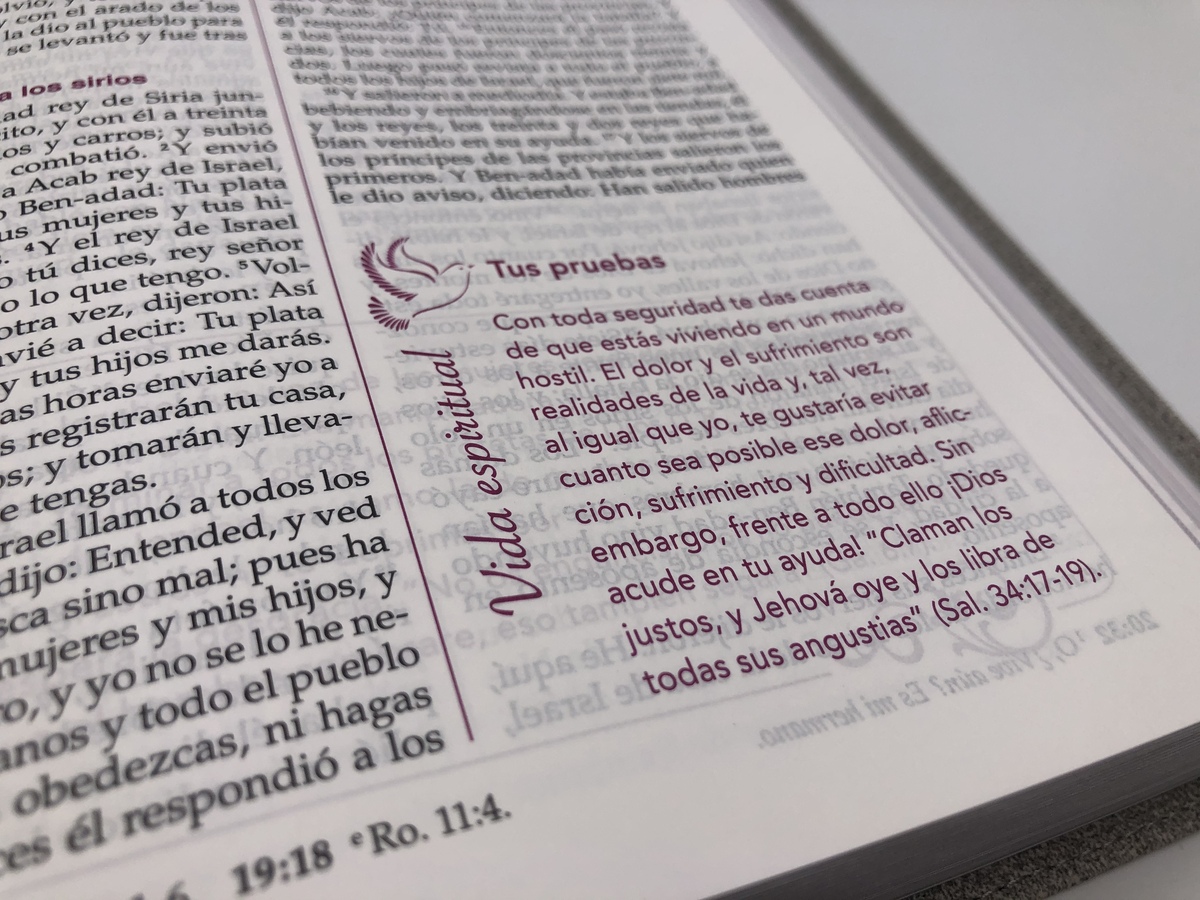 y con el arado de los
la dio al pueblo para
se levantó y fue tras
a los sirios
ad rey de Siria jun-
ito, y con él a treinta
os y carros; y subió
combatió. ²Y envió
a Acab rey de Israel,
Ben-adad: Tu plata
us mujeres y tus hi-
⁴Y el rey de Israel
tú dices, rey señor
o lo que tengo. ⁵Vol-
otra vez, dijeron: Así
vié a decir: Tu plata
y tus hijos me darás.
as horas enviaré yo a
s registrarán tu casa,
os; y tomarán y lleva-
e tengas.
rael llamó a todos los
dijo: Entended, y ved
sca sino mal; pues ha
mujeres y mis hijos, y
ro, y yo no se lo he ne-
anos y todo el pueblo
obedezcas, ni hagas
ces él respondió a los
todos los hijos de Israel,
bebiendo y
y los reyes, los treinta y dos reyes que ha-
bían venido en su ayuda. Y los siervos de
los príncipes de las provincias salieron los
primeros. Y Ben-adad había enviado quien
le dio aviso, diciendo: Han salido hombres
Vida espiritual
Tus pruebas
Con toda seguridad te das cuenta
de que estás viviendo en un mundo
hostil. El dolor y el sufrimiento son
realidades de la vida y, tal vez,
al igual que yo, te gustaría evitar
cuanto sea posible ese dolor, aflic-
ción, sufrimiento y dificultad. Sin
embargo, frente a todo ello ¡Dios
acude en tu ayuda! "Claman los
justos, y Jehová oye y los libra de
todas sus angustias" (Sal. 34:17-19).
19:18 ᵉRo. 11:4.